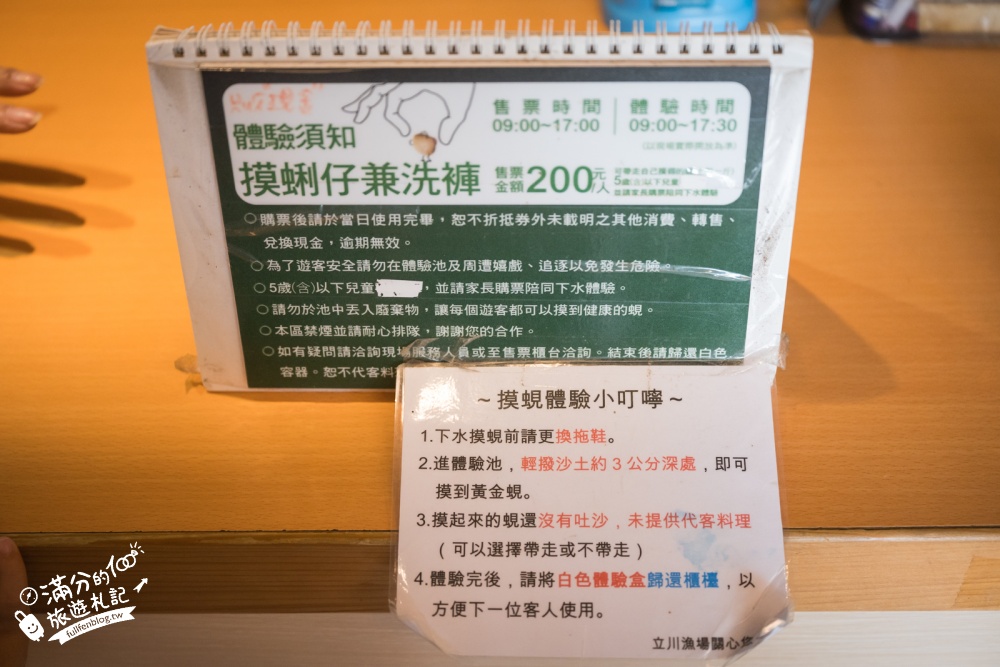 體驗須知
摸蜊仔兼洗褲
售票時間
09:00~17:00
體驗時間
09:00~17:30
售票金額200元/人
5歲(含)以下兒童
並請家長購票陪同下水體驗
○購票後請於當日使用完畢，恕不折抵券外未載明之其他消費、轉售、
兌換現金，逾期無效。
○為了遊客安全請勿在體驗池及周遭嬉戲、追逐以免發生危險。
○5歲(含)以下兒童，並請家長購票陪同下水體驗。
○請勿於池中丟入廢棄物，讓每個遊客都可以摸到健康的蜆。
○本區禁煙並請耐心排隊，謝謝您的合作。
○如有疑問請洽詢現場服務人員或至售票櫃台洽詢。結束後請歸還白色
容器。恕不代客料
~摸蜆體驗小叮嚀~
1.下水摸蜆前請更換拖鞋。
2.進體驗池，輕撥沙土約3公分深處，即可
摸到黃金蜆。
3.摸起來的蜆還沒有吐沙，未提供代客料理
（可以選擇帶走或不帶走）
4.體驗完後，請將白色體驗盒歸還櫃檯，以
方便下一位客人使用。
立川漁場關心您
滿分的100
旅遊札記
fullfenblog.tw